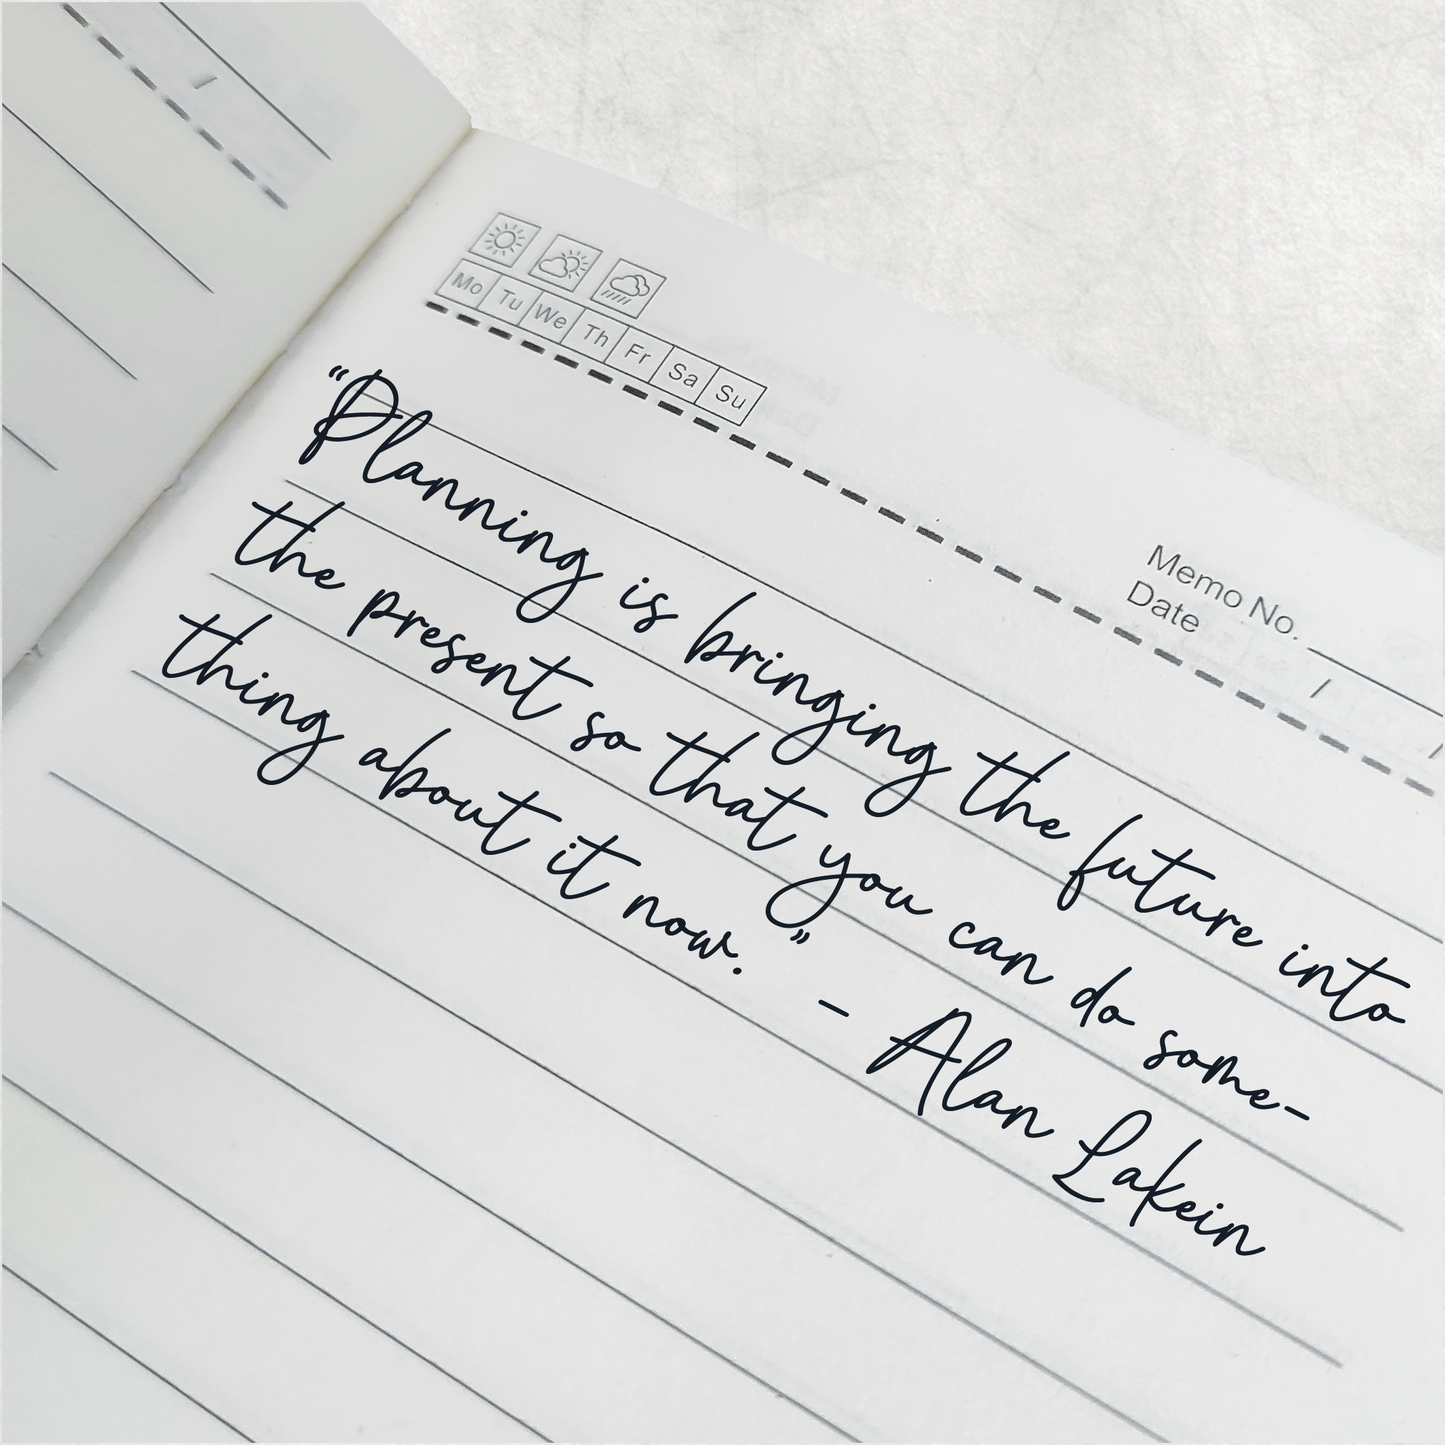 Mo Tu We Th Fr Sa Su
Memo No.
Date / /
“Planning is bringing the future into
the present so that you can do some-
thing about it now.”
- Alan Lakein